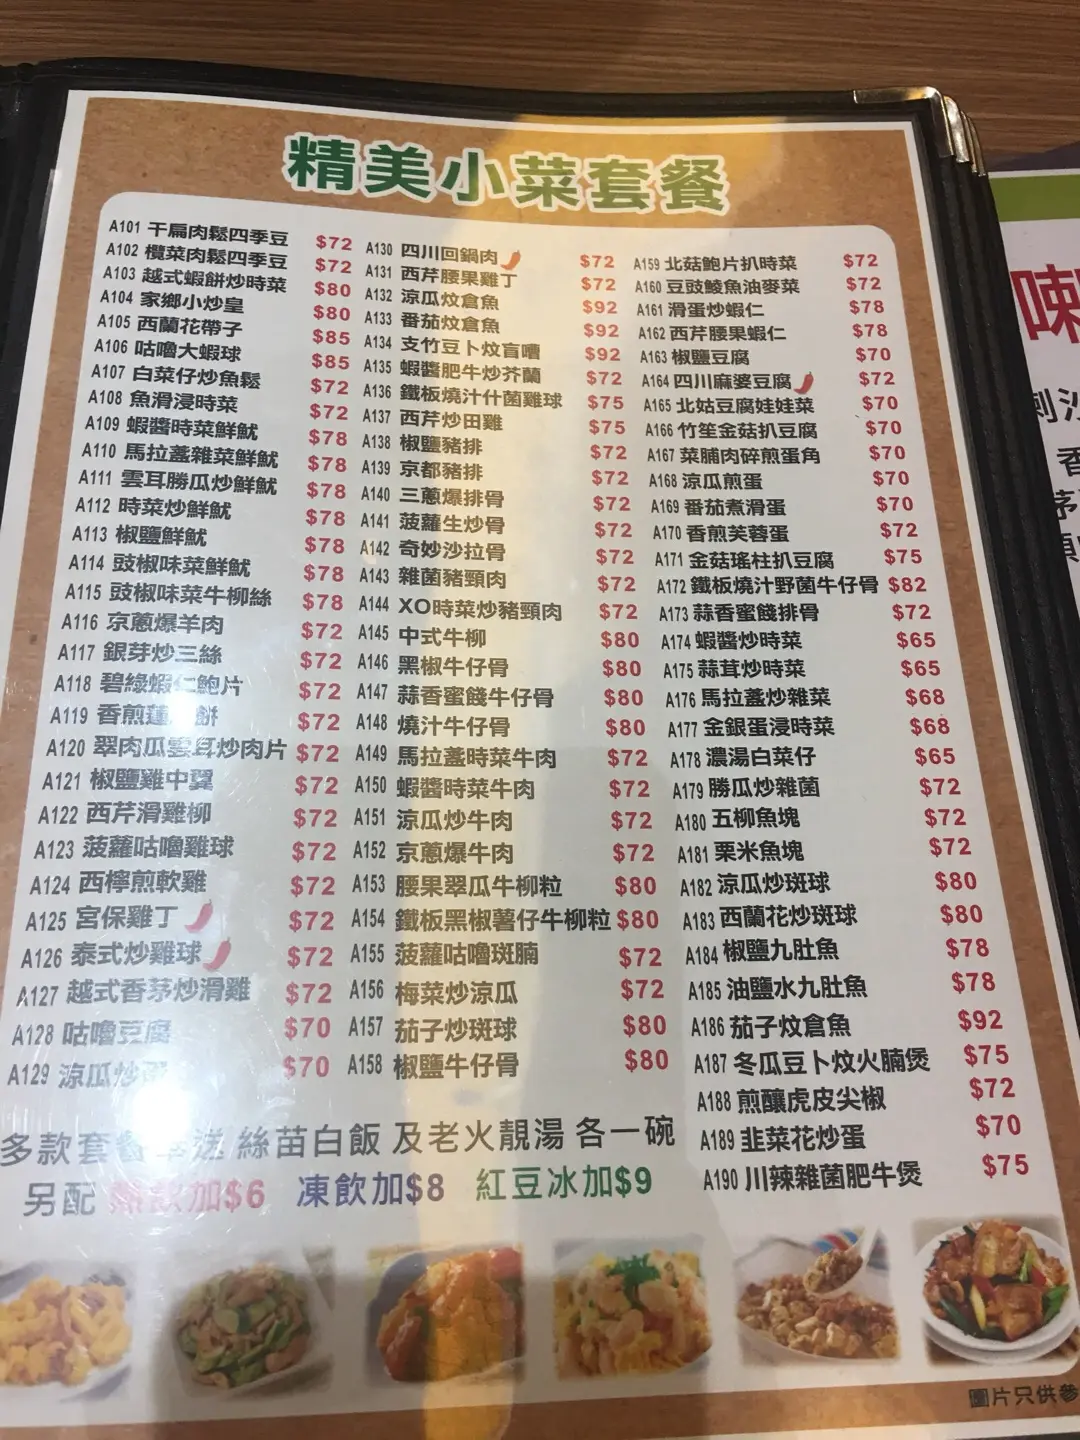 精美小菜套餐
A101 干扁肉鬆四季豆 $72
A102 欖菜肉鬆四季豆 $72
A103 越式蝦餅炒時菜 $80
A104 家鄉小炒皇 $80
A105 西蘭花帶子 $85
A106 咕嚕大蝦球 $85
A107 白菜仔炒魚鬆 $72
A108 魚滑浸時菜 $72
A109 蝦醬時菜鮮魷 $78
A110 馬拉盞雜菜鮮魷 $78
A111 雲耳勝瓜炒鮮魷 $78
A112 時菜炒鮮魷 $78
A113 椒鹽鮮魷 $78
A114 豉椒味菜鮮魷 $78
A115 豉椒味菜牛柳絲 $78
A116 京蔥爆羊肉 $72
A117 銀芽炒三絲 $72
A118 碧綠蝦仁鮑片 $72
A119 香煎蓮 餅 $72
A120 翠肉瓜雲耳炒肉片 $72
A121 椒鹽雞中翼 $72
A122 西芹滑雞柳 $72
A123 菠蘿咕嚕雞球 $72
A124 西檸煎軟雞 $72
A125 宮保雞丁 $72
A126 泰式炒雞球 $72
A127 越式香茅炒滑雞 $72
A128 咕嚕豆腐 $70
A129 涼瓜炒 $70
A130 四川回鍋肉 $72
A131 西芹腰果雞丁 $72
A132 涼瓜炆倉魚 $92
A133 番茄炆倉魚 $92
A134 支竹豆卜炆盲嘈 $92
A135 蝦醬肥牛炒芥蘭 $72
A136 鐵板燒汁什菌雞球 $75
A137 西芹炒田雞 $75
A138 椒鹽豬排 $72
A139 京都豬排 $72
A140 三蔥爆排骨 $72
A141 菠蘿生炒骨 $72
A142 奇妙沙拉骨 $72
A143 雜菌豬頸肉 $72
A144 XO時菜炒豬頸肉 $72
A145 中式牛柳 $80
A146 黑椒牛仔骨 $80
A147 蒜香蜜餞牛仔骨 $80
A148 燒汁牛仔骨 $80
A149 馬拉盞時菜牛肉 $72
A150 蝦醬時菜牛肉 $72
A151 涼瓜炒牛肉 $72
A152 京蔥爆牛肉 $72
A153 腰果翠瓜牛柳粒 $80
A154 鐵板黑椒薯仔牛柳粒 $80
A155 菠蘿咕嚕斑腩 $72
A156 梅菜炒涼瓜 $72
A157 茄子炒斑球 $80
A158 椒鹽牛仔骨 $80
A159 北菇鮑片扒時菜 $72
A160 豆豉鯪魚油麥菜 $72
A161 滑蛋炒蝦仁 $78
A162 西芹腰果蝦仁 $78
A163 椒鹽豆腐 $70
A164 四川麻婆豆腐 $72
A165 北姑豆腐娃娃菜 $70
A166 竹笙金菇扒豆腐 $70
A167 菜脯肉碎煎蛋角 $70
A168 涼瓜煎蛋 $70
A169 番茄煮滑蛋 $70
A170 香煎芙蓉蛋 $72
A171 金菇瑤柱扒豆腐 $75
A172 鐵板燒汁野菌牛仔骨 $82
A173 蒜香蜜餞排骨 $72
A174 蝦醬炒時菜 $65
A175 蒜茸炒時菜 $65
A176 馬拉盞炒雜菜 $68
A177 金銀蛋浸時菜 $68
A178 濃湯白菜仔 $65
A179 勝瓜炒雜菌 $72
A180 五柳魚塊 $72
A181 粟米魚塊 $72
A182 涼瓜炒斑球 $80
A183 西蘭花炒斑球 $80
A184 椒鹽九肚魚 $78
A185 油鹽水九肚魚 $78
A186 茄子炆倉魚 $92
A187 冬瓜豆卜炆火腩煲 $75
A188 煎釀虎皮尖椒 $72
A189 韭菜花炒蛋 $70
A190 川辣雜菌肥牛煲 $75
多款套餐 送 絲苗白飯 及老火靚湯 各一碗
另配 熱飲加$6 凍飲加$8 紅豆冰加$9
圖片只供參